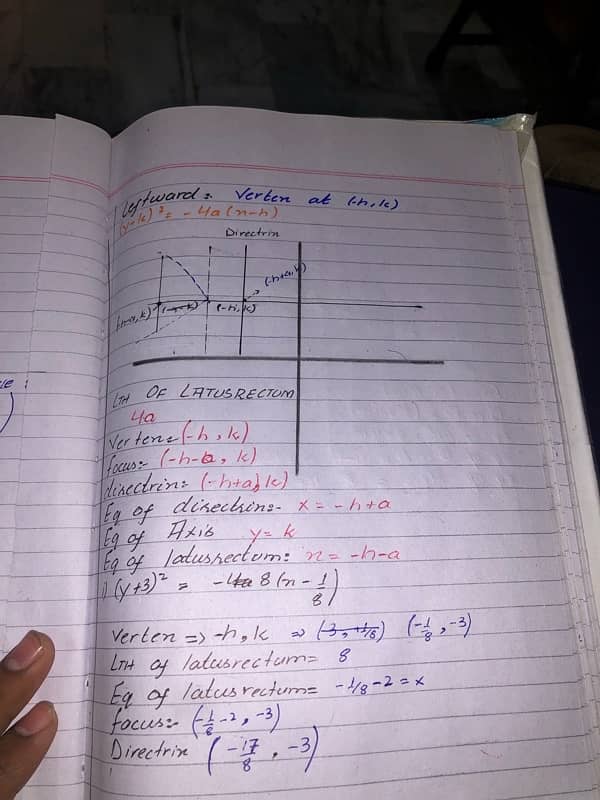 leftward: Verten at (-h,k)
(y-k)² = -4a(n-h)
Directrin
(-h+a,k)
(-h-a,k) (-h,k)
LTH OF LATUSRECTUM
4a
Verten= (-h, k)
focus:- (-h-a, k)
directrin= (-h+a, k)
Eq of directrin:- x = -h+a
Eq of Axis y= k
Eq of latusrectum: n = -h-a
i) (y+3)² = -8(n - 1/8)
Verten => -h, k => (3, +1/8) (-1/8, -3)
LTH of latusrectum= 8
Eq of latusrectum= -1/8 -2 = x
focus:- (-1/8 -2, -3)
Directrin (-17/8, -3)